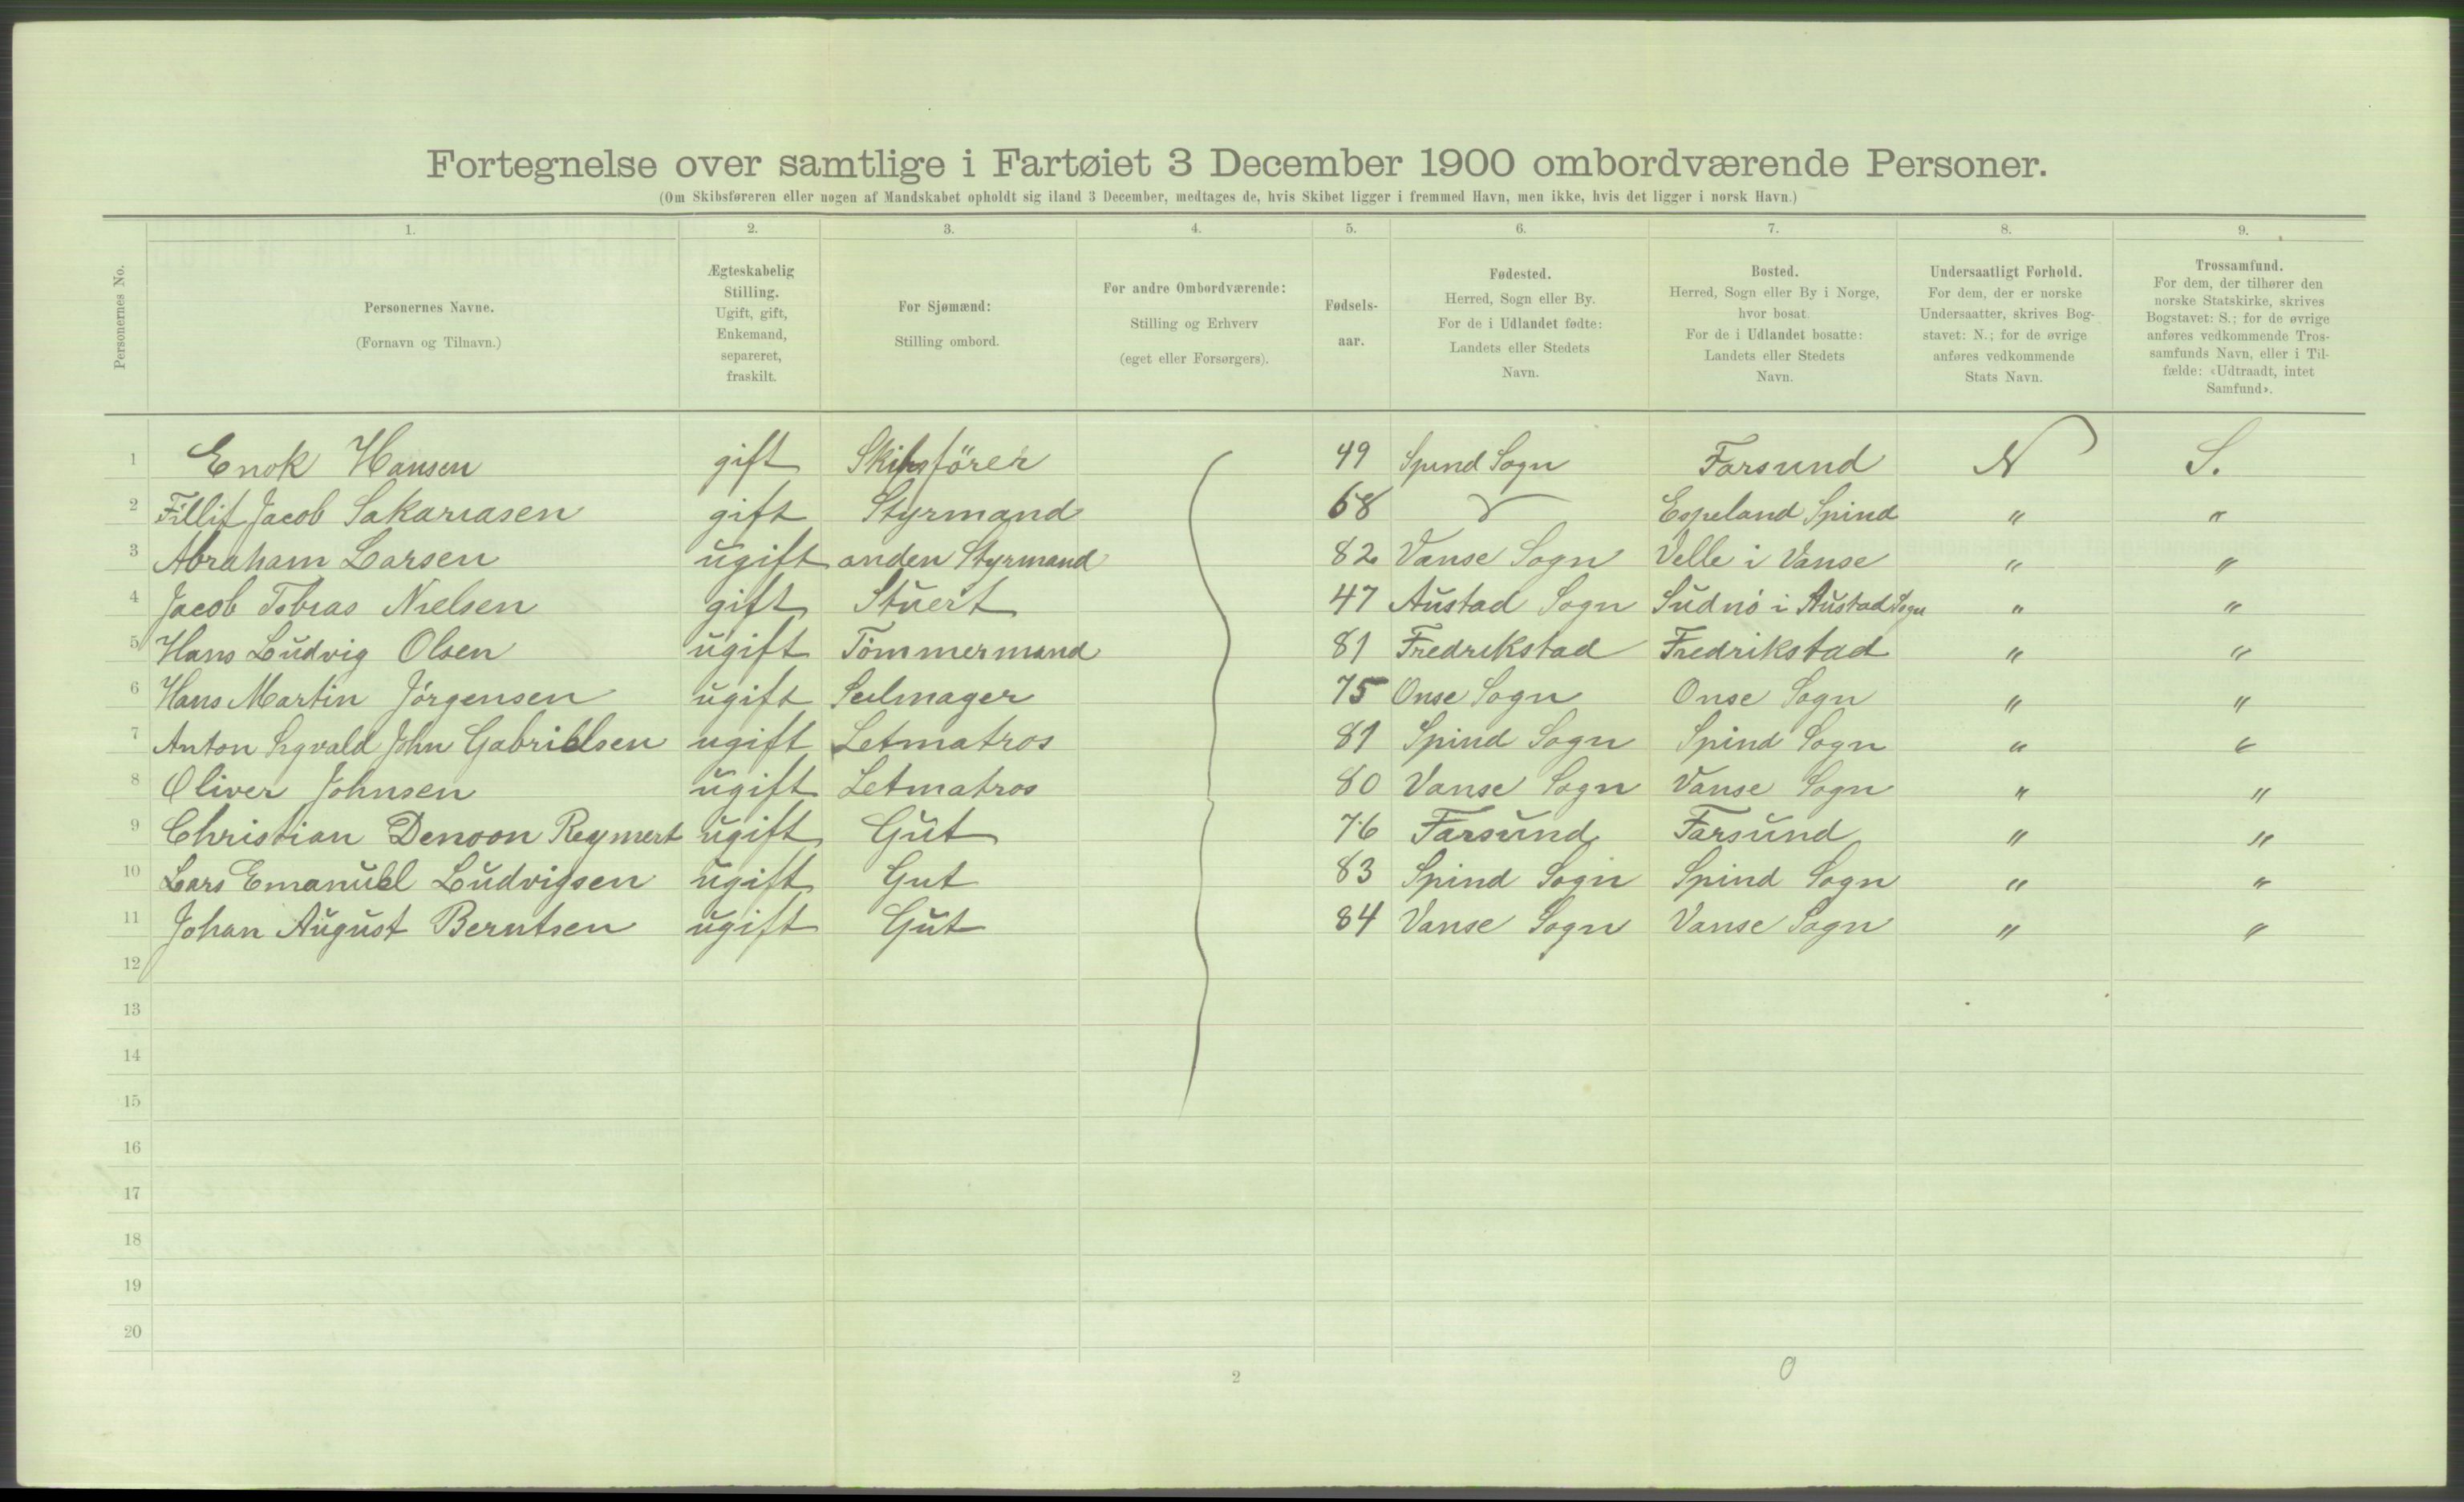 Fortegnelse over samtlige i Fartøiet 3 December 1900 ombordværende Personer.
(Om Skibsføreren eller nogen af Mandskabet opholdt sig iland 3 December, medtages de, hvis Skibet ligger i fremmed Havn, men ikke, hvis det ligger i norsk Havn.)
Personernes No.
1. 2. 3. 4. 5. 6. 7. 8. 9.
Personernes Navne.
(Fornavn og Tilnavn.)
Ægteskabelig
Stilling.
Ugift, gift,
Enkemand,
separeret,
fraskilt.
For Sjømænd:
Stilling ombord.
For andre Ombordværende:
Stilling og Erhverv
(eget eller Forsørgers).
Fødsels-
aar.
Fødested.
Herred, Sogn eller By.
For de i Udlandet fødte:
Landets eller Stedets
Navn.
Bosted.
Herred, Sogn eller By i Norge,
hvor bosat.
For de i Udlandet bosatte:
Landets eller Stedets
Navn.
Undersaatligt Forhold.
For dem, der er norske
Undersaatter, skrives Bog-
stavet: N.; for de øvrige
anføres vedkommende
Stats Navn.
Trossamfund.
For dem, der tilhører den
norske Statskirke, skrives
Bogstavet: S.; for de øvrige
anføres vedkommende Tros-
samfunds Navn, eller i Til-
fælde: «Udtraadt, intet
Samfund».
1 Enok Hansen gift Skibsförer 49 Spind Sogn Farsund N S.
2 Fillif Jacob Sakariasen gift Styrmand 68 Espeland Spind " "
3 Abraham Larsen ugift anden Styrmand 82 Vanse Sogn Velle i Vanse " "
4 Jacob Tobias Nielsen gift Stuert 47 Austad Sogn i Austad Sogn " "
5 Hans Ludvig Olsen ugift Tömmermand 81 Fredrikstad Fredrikstad " "
6 Hans Martin Jörgensen ugift Seilmager 75 Onse Sogn Onse Sogn " "
7 Anton Sigvald John Gabrielsen ugift Letmatros 81 Spind Sogn Spind Sogn " "
8 Oliver Johnsen ugift Letmatros 80 Vanse Sogn Vanse Sogn " "
9 Christian Denoon Reymert ugift Gut 76 Farsund Farsund " "
10 Lars Emanuel Ludvigsen ugift Gut 83 Spind Sogn Spind Sogn " "
11 Johan August Berntsen ugift Gut 84 Vanse Sogn Vanse Sogn " "
12
13
14
15
16
17
18
19
20
2
0